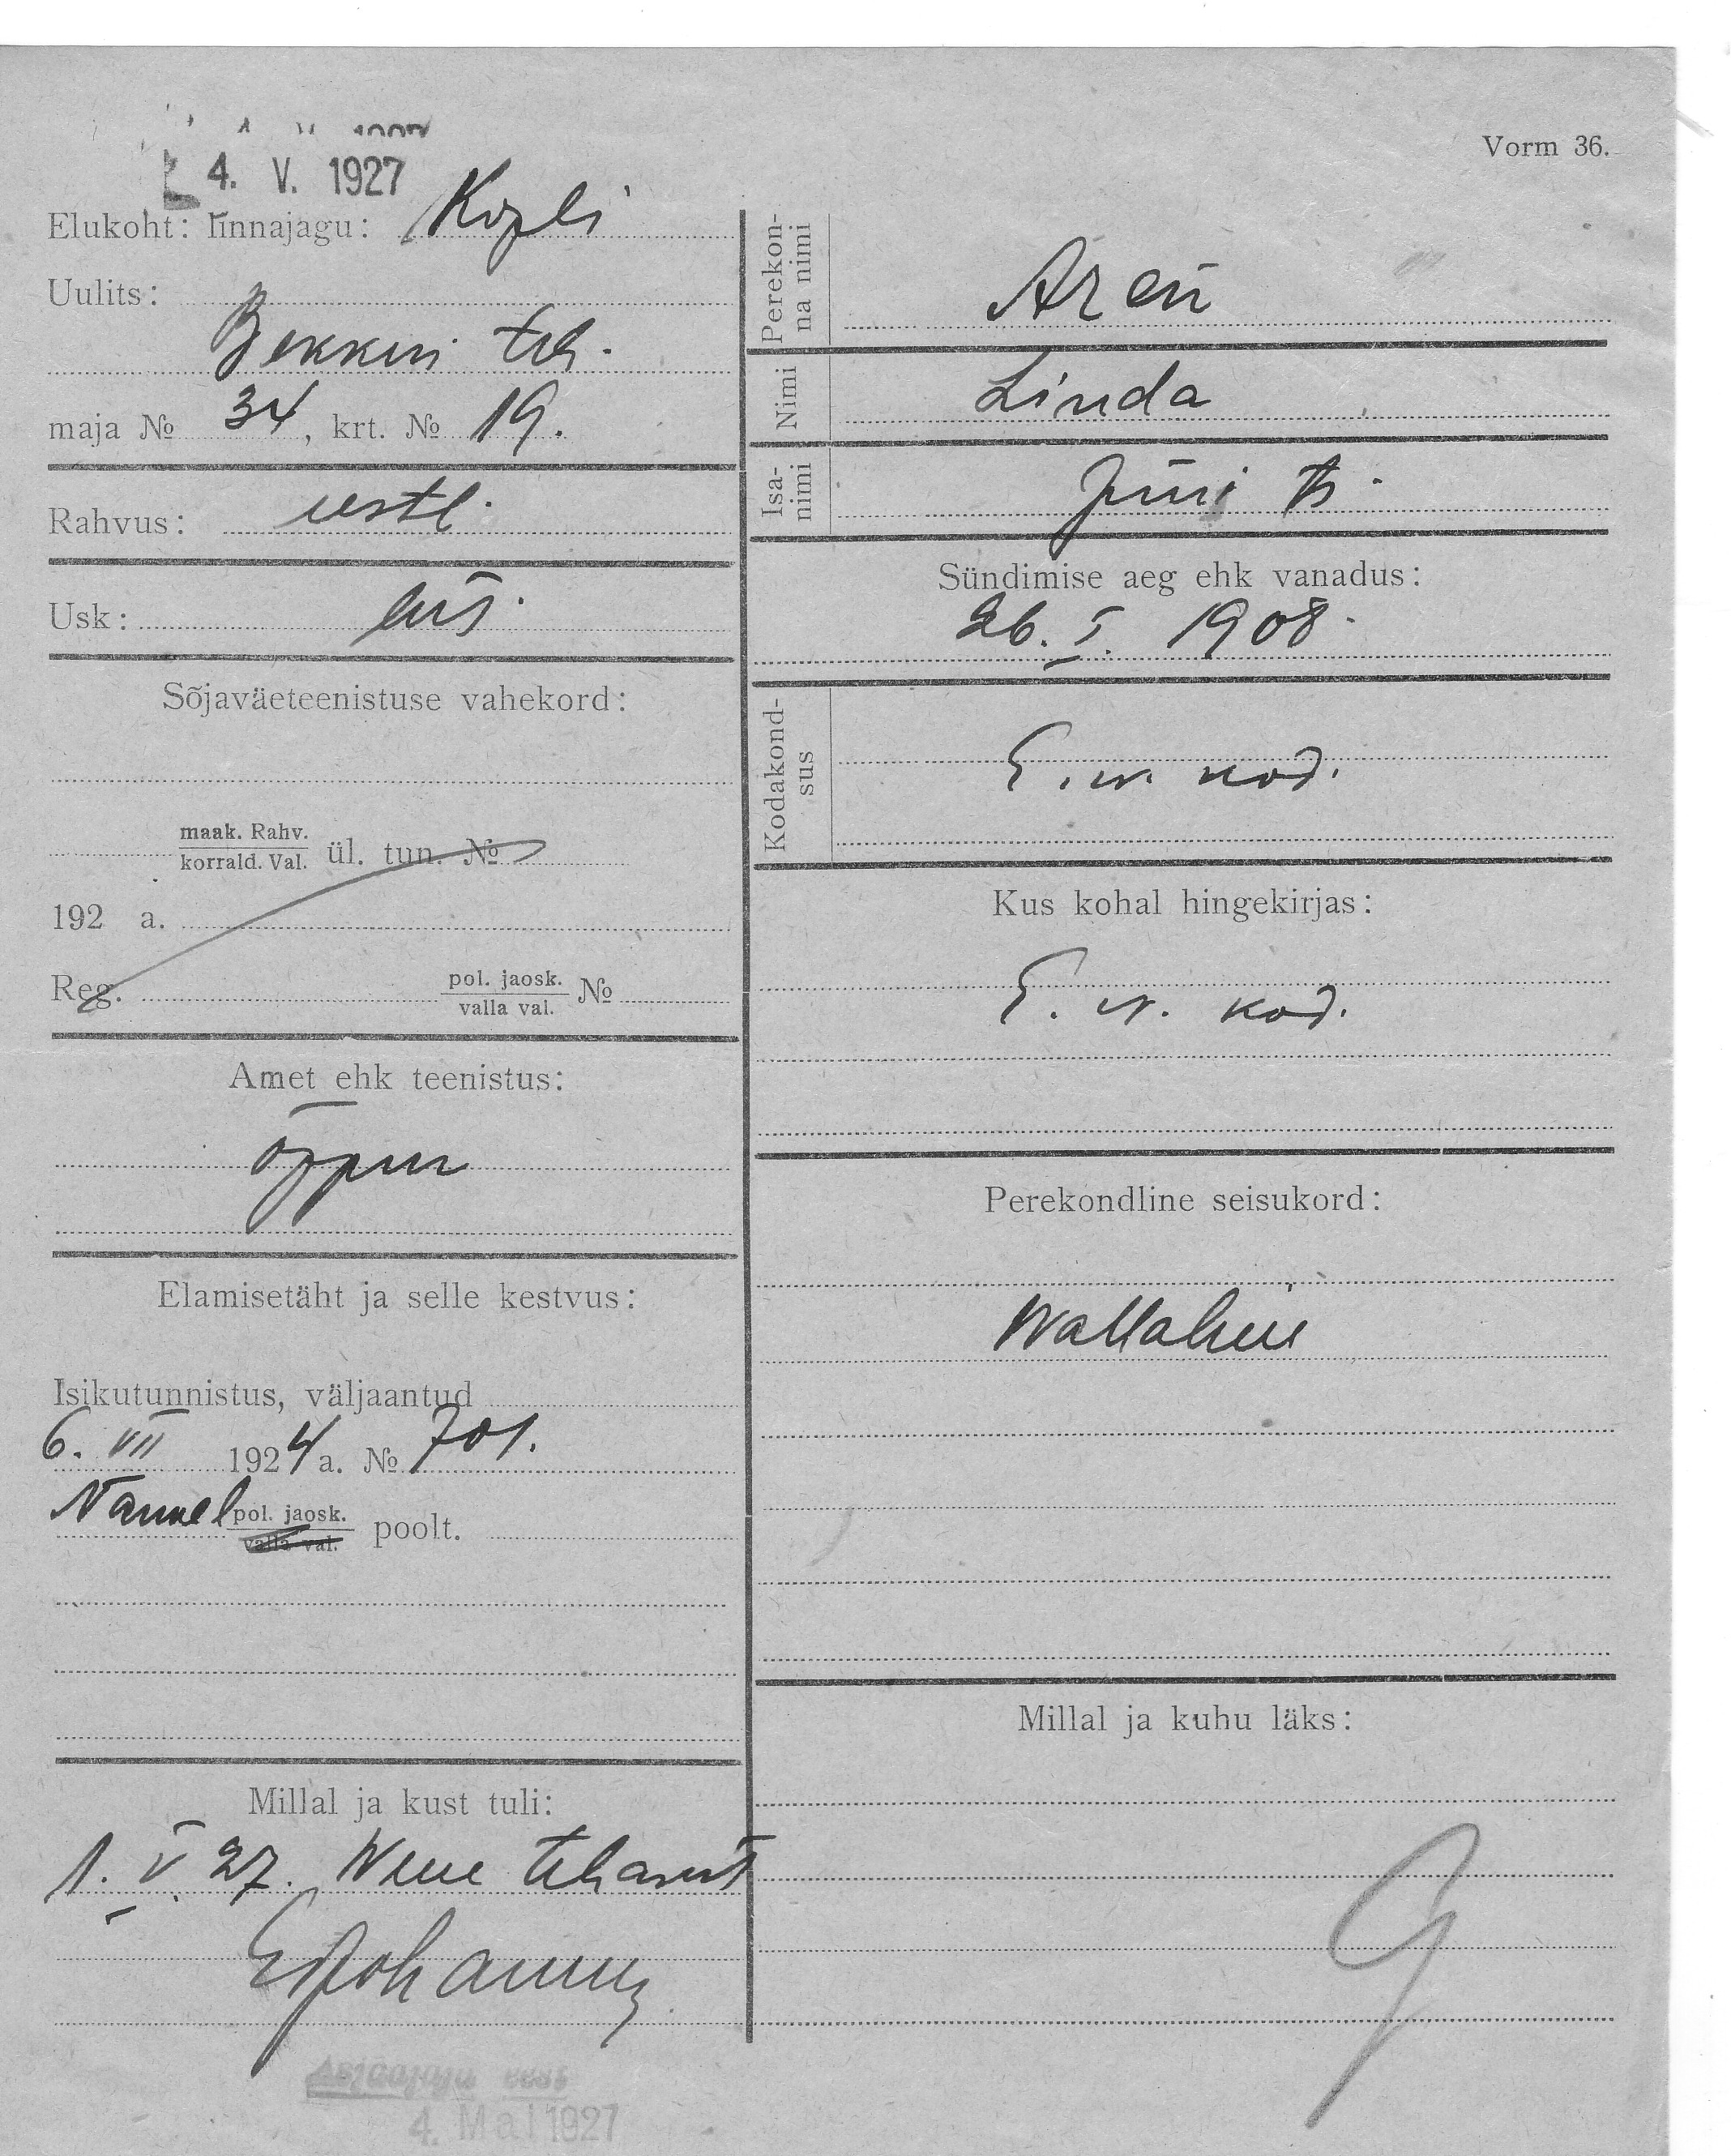 4. V. 1927
Vorm 36.
Elukoht: linnajagu: Kopli
Uulits:
Bekkeri teh.
maja № 34, krt. № 19.
Rahvus: eestl.
Usk: lut.
Sõjaväeteenistuse vahekord:
maak. Rahv.
korrald. Val. ül. tun. №
192 a.
Reg. pol. jaosk. №
valla val.
Amet ehk teenistus:
Elamisetäht ja selle kestvus:
Isikutunnistus, väljaantud
6. VII 1924 a. № 701.
pol. jaosk. poolt.
valla val.
Millal ja kust tuli:
1. V. 27. Wene tehasest
Asjaajaja eest
4. Mai 1927
Perekon-
na nimi
Nimi Linda
Isa-
nimi Jüri tr.
Sündimise aeg ehk vanadus:
26. I. 1908.
Kodakond-
sus E. w. kod.
Kus kohal hingekirjas:
E. w. kod.
Perekondline seisukord:
Wallaline
Millal ja kuhu läks: